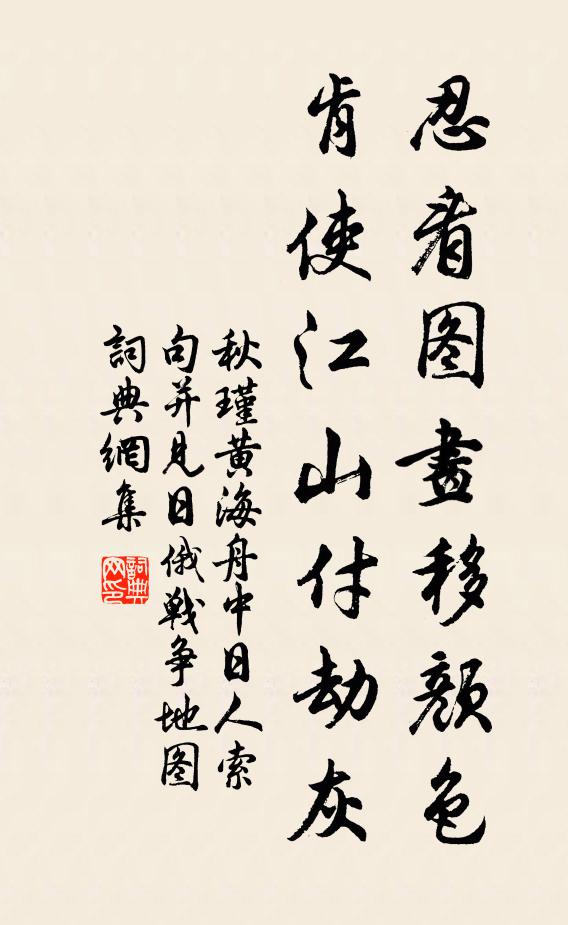 忍看图畫移颜色
肯使江山付劫灰
秋瑾黄海舟中日人索
句并見日俄戰争地图
詞典網集
詞典网印